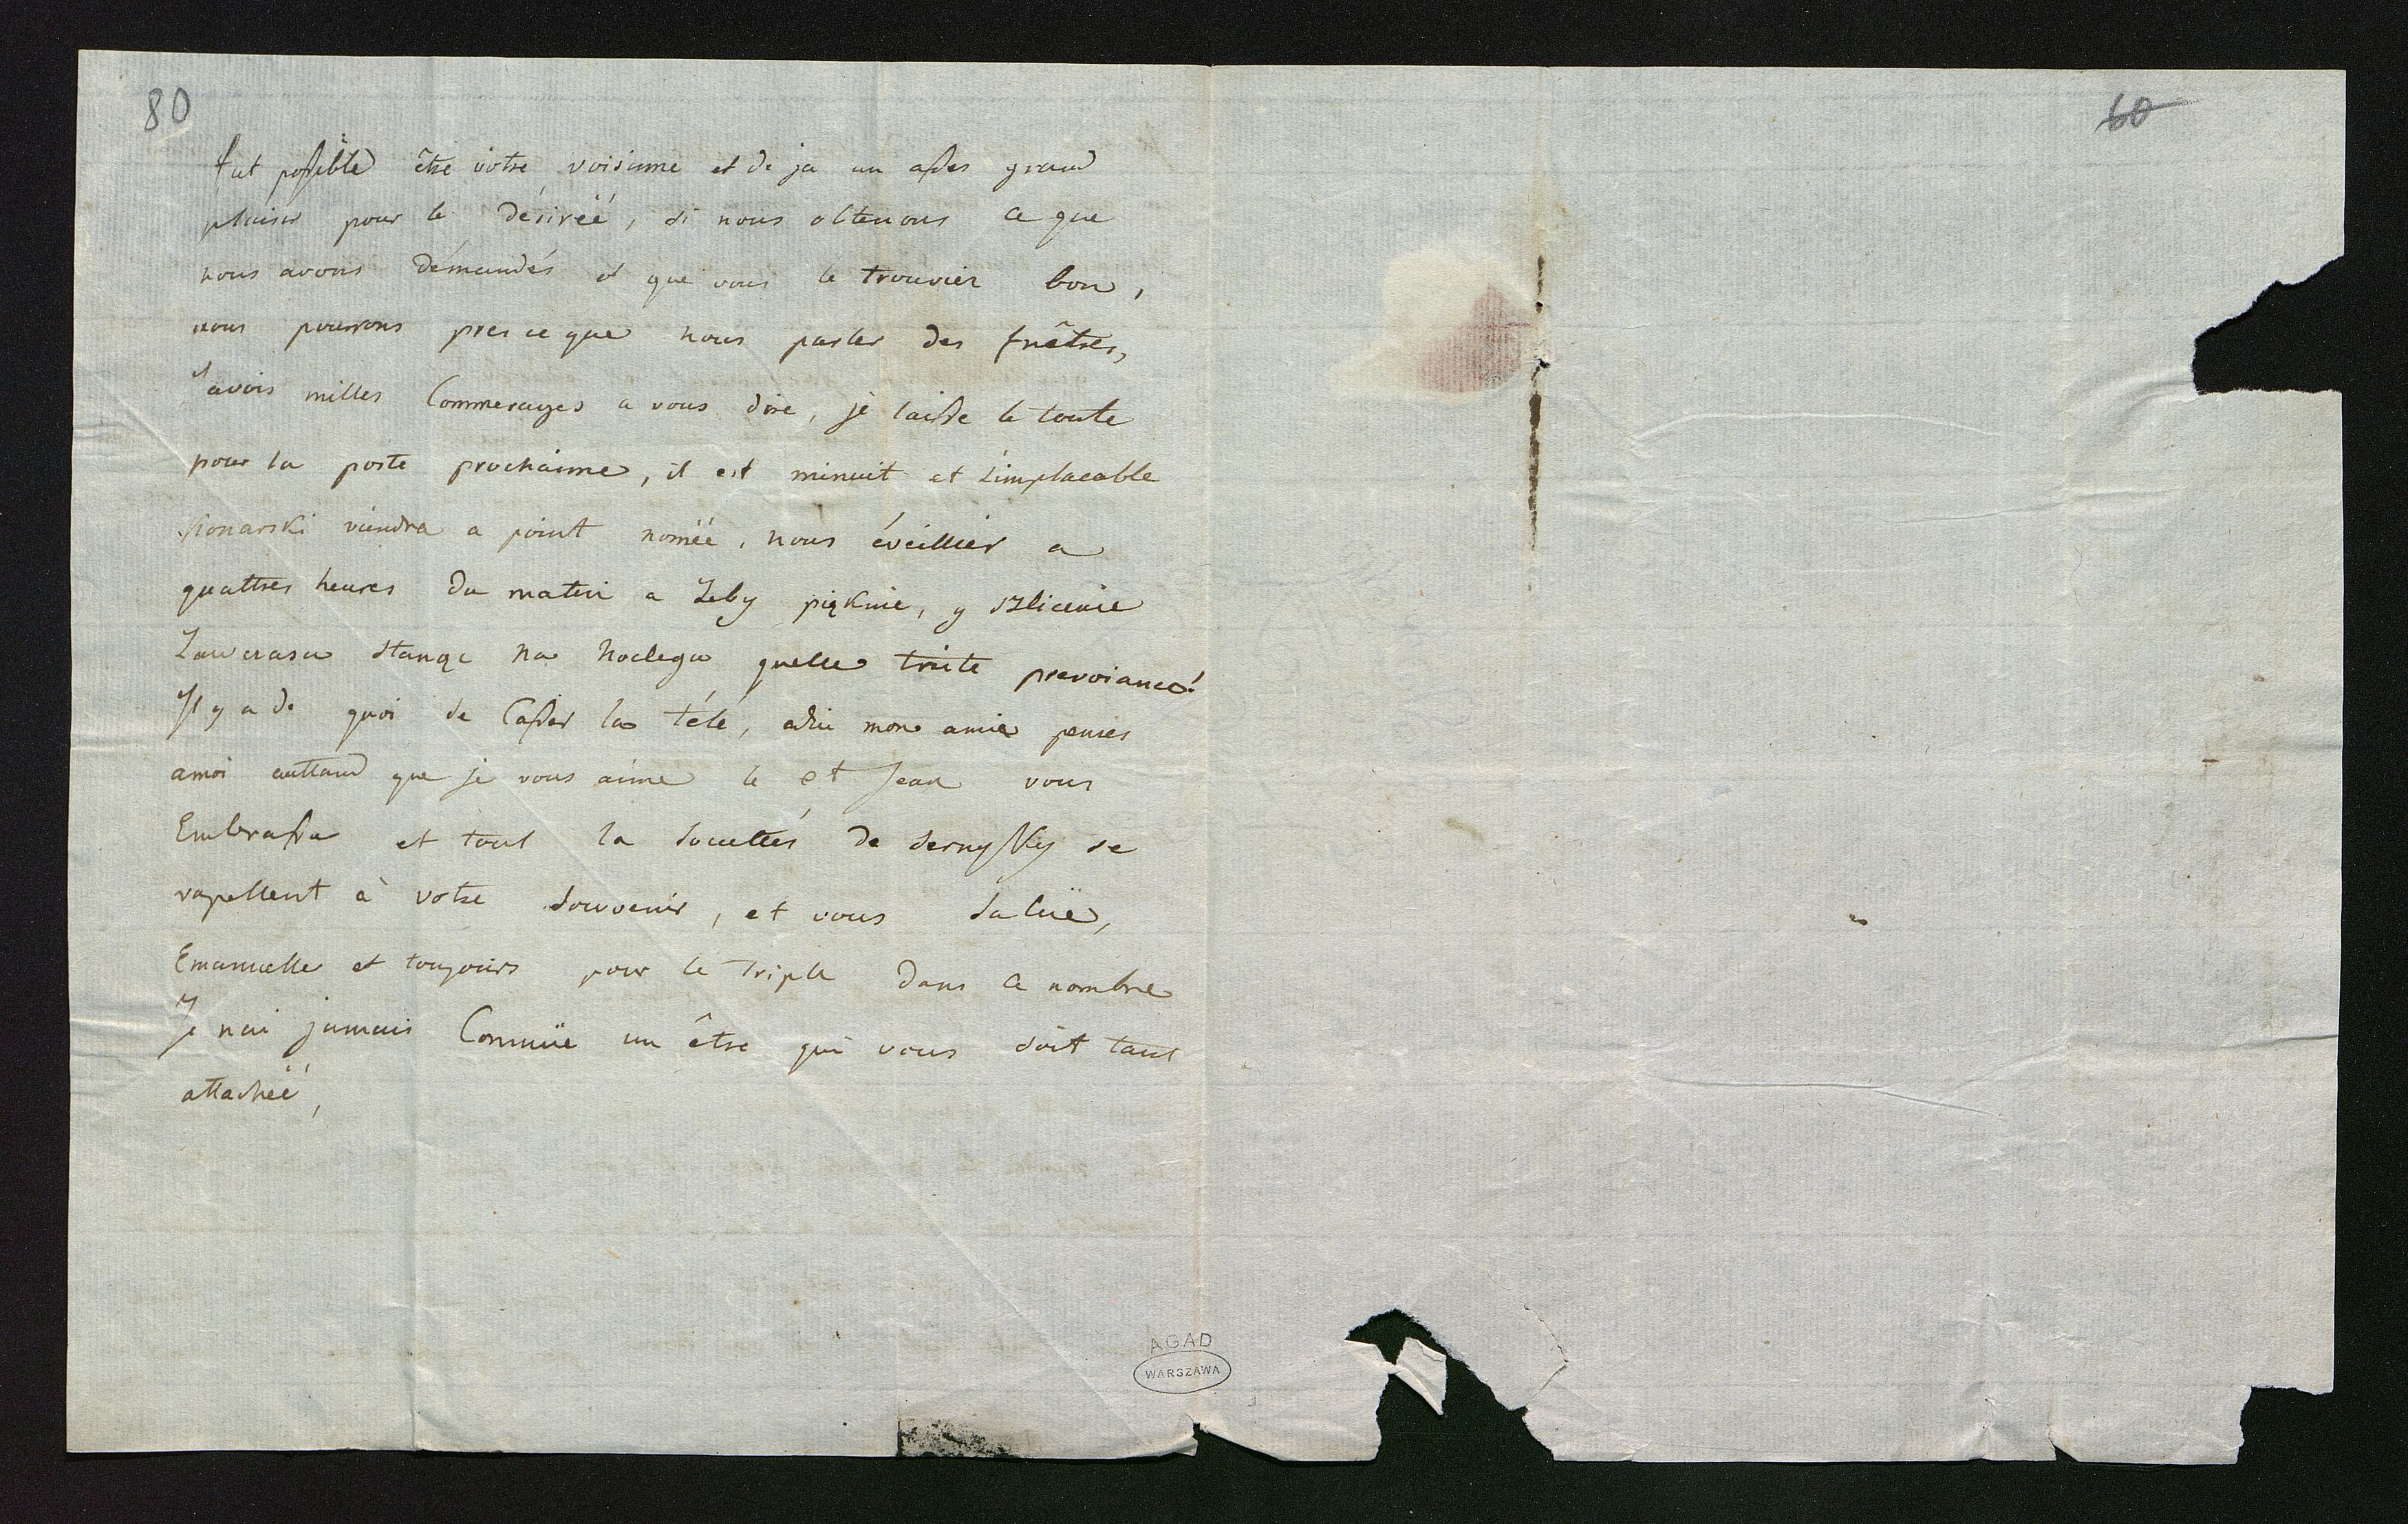 80
60
fut possible être votre voisinne et de ja un assés grand
plaisir pour le désiréé, si nous obtenons ce que
nous avons démandés et que vous le trouvier bon,
nous pourrons presceque nous parler des fnêtres,
J'avois milles Commerages a vous dire, je laisse le toute
pour la poste prochainne, il est minuit et l'implacable
Konarski viendra a point noméé, nous éveillier a
quattres heures du matin a Zeby pięknie, y szlicznie
Zawczasu stanąc na noclegu quelle triste prevoiance!
Il y a de quoi se Casser la téte, adiu mon amie penses
amoi auttand que je vous aime le st Jean vous
Embrassa et tout la Societtés de Sernyky se
rapellent à votre souvenir, et vous saluë,
Emanuelle et toujours pour le triple dans ce nombre
Je nai jamais Connuïe un être qui vous soit tant
attachéé,
AGAD
WARSZAWA